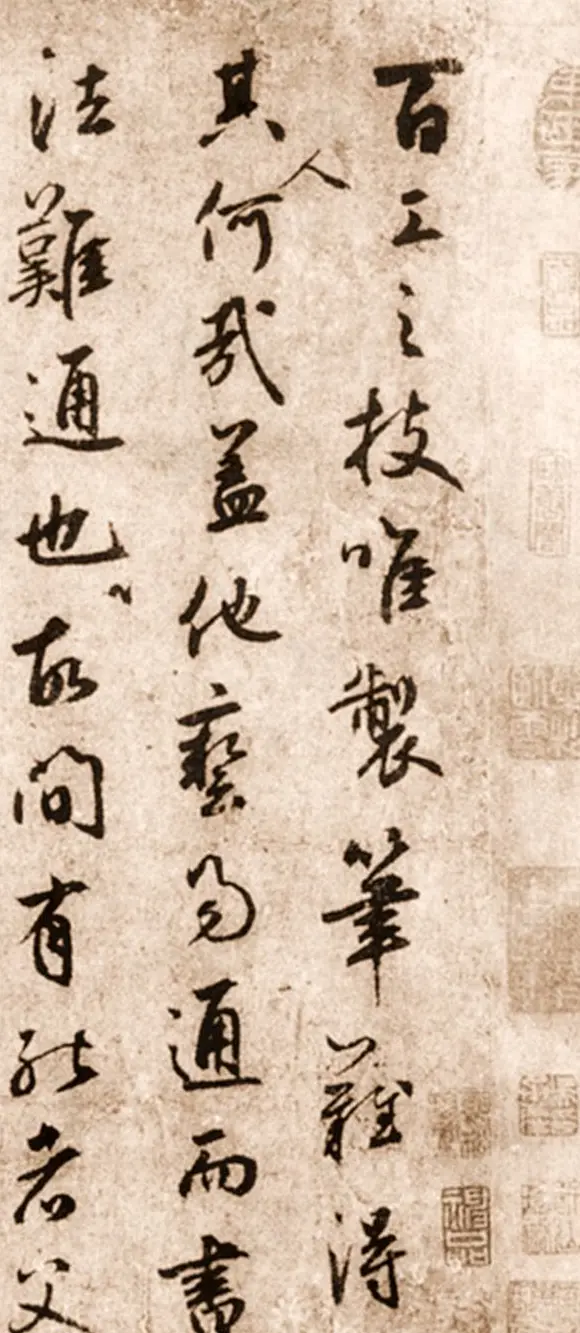 百工之技唯製筆難得
其人何哉盖他藝易通而書
法難通也故間有能者父